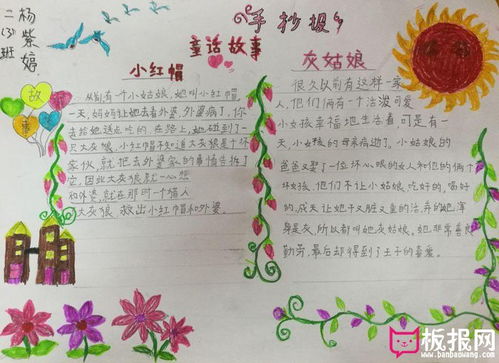 二(3)班
杨紫婷
手抄报
童话故事
故
事
小红帽
从前有个小姑娘,她叫小红帽
一天,妈妈让她去看外婆,外婆病了,你
去给她送点吃的,在路上,她碰到了一
只大灰狼,小红帽不知道大灰狼是个坏
家伙,就把去外婆家的事情告诉了
它,因此大灰狼就一心想
和外婆,就在那时个猎人
大灰狼 救出小红帽和外婆。
灰姑娘
很久以前有这样一家
人,他们俩有一个活泼可爱
小女孩幸福地生活着可是有一
天,小女孩的母亲病逝了,小姑娘的
爸爸又娶了一位坏心眼的女人和他的俩个
坏女孩,他们不让小姑娘吃好的,喝好
的,成天让她干又脏又重的活,弄的她浑
身是灰,所以都叫她灰姑娘。她非常善良
勤劳,最后却得到了王子的喜爱。
板报网
www.banbaowang.com